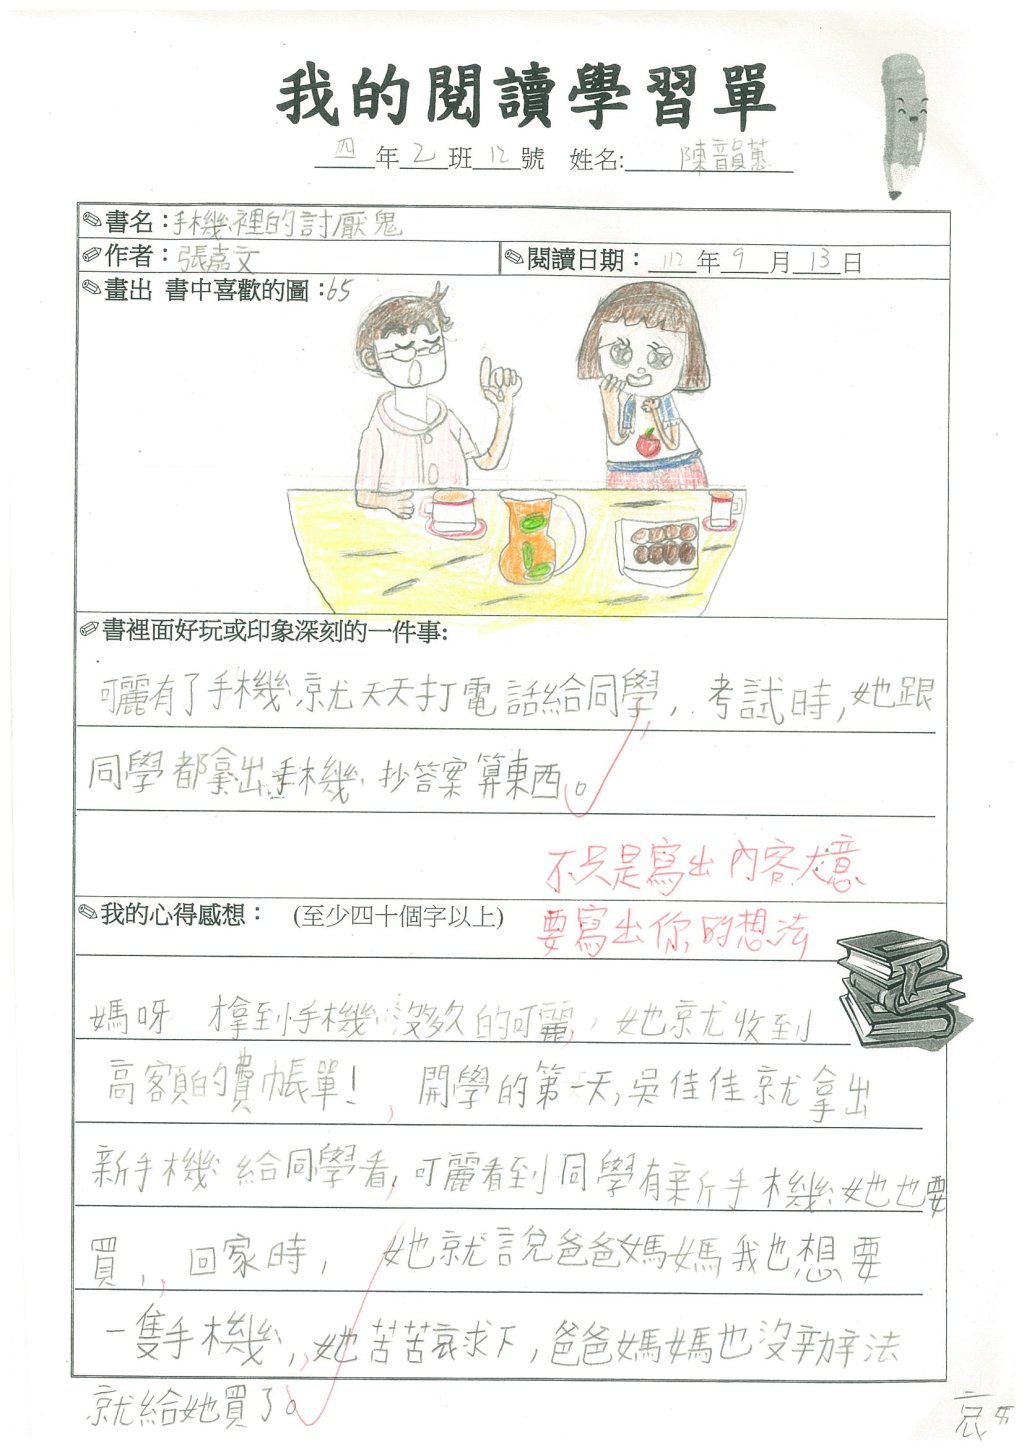 我的閱讀學習單
四年乙班12號 姓名:陳韻蕙
書名：手機裡的討厭鬼
作者：張嘉文 閱讀日期：112年9月13日
畫出 書中喜歡的圖：65
書裡面好玩或印象深刻的一件事:
可麗有了手機就天天打電話給同學，考試時,她跟
同學都拿出手機抄答案算東西。
不只是寫出內容大意
我的心得感想： (至少四十個字以上)
要寫出你的想法
媽呀 拿到手機沒多久的可麗，她就收到
高額的費帳單! ,開學的第一天,吳佳佳就拿出
新手機給同學看,可麗看到同學有新手機她也要
買,,回家時,她就說爸爸媽媽我也想要
一隻手機,,她苦苦哀求下,爸爸媽媽也沒辦法
就給她買了。
哀